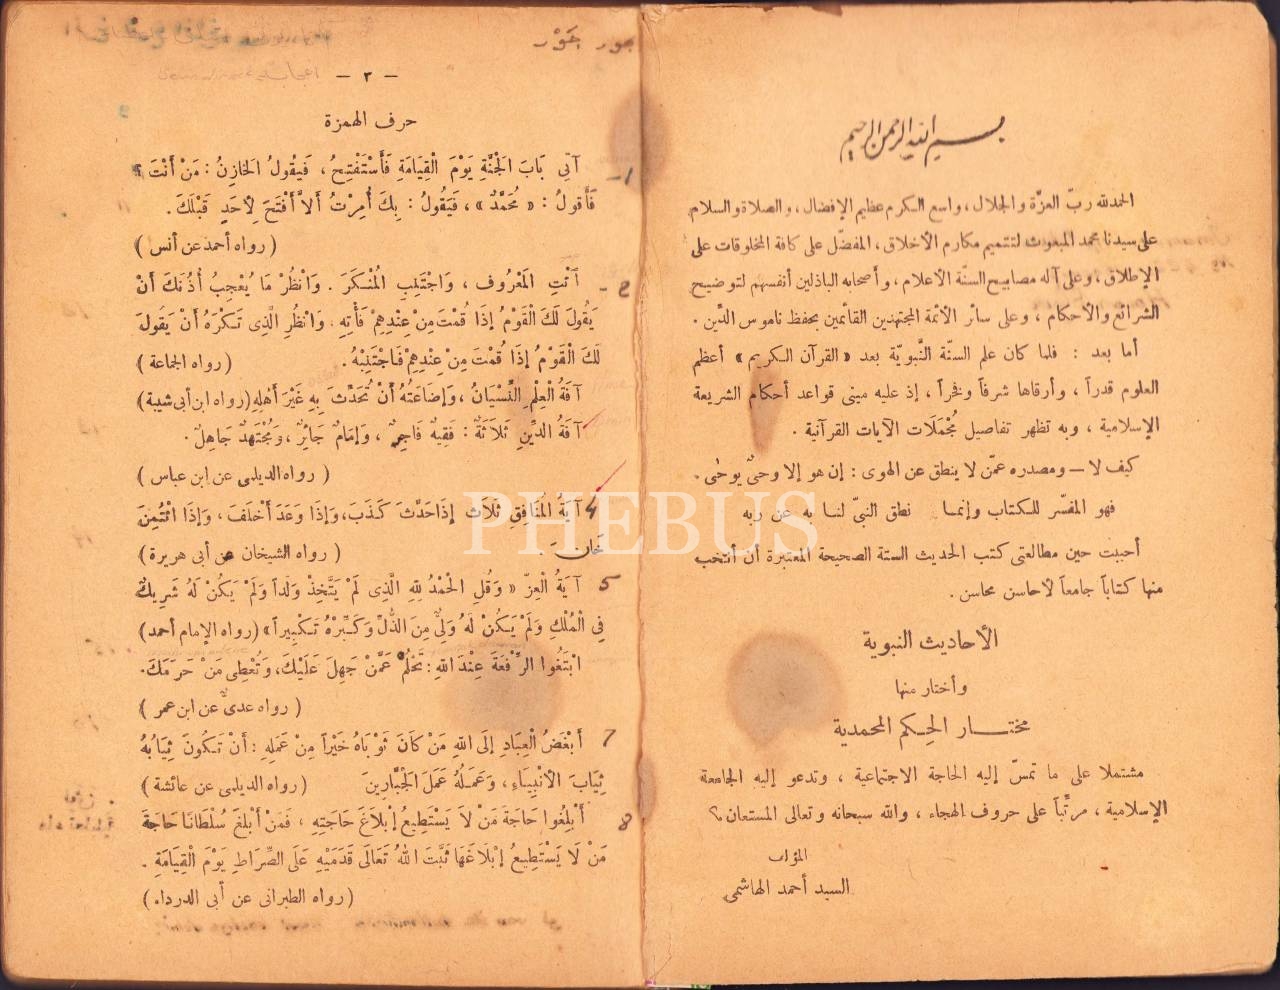 بسم الله الرحمن الرحيم
الحمد لله ربّ العزّة والجلال، واسع الكرم عظيم الإفضال، والصلاة والسلام
على سيدنا محمد المبعوث لتتميم مكارم الأخلاق، المفضّل على كافة المخلوقات على
الإطلاق، وعلى آله مصابيح السنّة الأعلام، وأصحابه الباذلين أنفسهم لتوضيح
الشرائع والأحكام، وعلى سائر الأئمة المجتهدين القائمين بحفظ ناموس الدّين.
أما بعد : فلما كان علم السنّة النّبوية بعد «القرآن الكريم» أعظم
العلوم قدراً، وأرقاها شرفاً وفخراً، إذ عليه مبنى قواعد أحكام الشريعة
الإسلامية، وبه تظهر تفاصيل مُجْمَلَات الآيات القرآنية.
كيف لا — ومصدره عمّن لا ينطق عن الهوى : إن هو إلا وحىٌ يوحٰى.
فهو المفسّر للكتاب وإنما نطق النبىّ لنا به عن ربه
أحببت حين مطالعتى كتب الحديث الستة الصحيحة المعتبرة أن أنتخب
منها كتاباً جامعاً لأحاسن محاسن.
الأحاديث النبوية
وأختار منها
مختار الحكم المحمدية
مشتملا على ما تمسّ إليه الحاجة الاجتماعية، وتدعو إليه الجامعة
الإسلامية، مرتّباً على حروف الهجاء، والله سبحانه وتعالى المستعان؟
المؤلف
السيد أحمد الهاشمى
جور جَوْر
— ٣ —
حرف الهمزة
1- آتِى بَابَ الْجَنَّةِ يَوْمَ الْقِيَامَةِ فَأَسْتَفْتِحُ، فَيَقُولُ الْخَازِنُ : مَنْ أَنْتَ؟
فَأَقُولُ : «مُحَمَّدٌ»، فَيَقُولُ : بِكَ أُمِرْتُ أَلاَّ أَفْتَحَ لِأَحَدٍ قَبْلَكَ.
(رواه أحمد عن أنس)
2- اَنْتِ الْمَعْرُوفَ، وَاجْتَنِبِ الْمُنْكَرَ. وَانْظُرْ مَا يُعْجِبُ أُذُنَكَ أَنْ
يَقُولَ لَكَ الْقَوْمُ إِذَا قُمْتَ مِنْ عِنْدِهِمْ فَأْتِهِ. وَانْظُرِ الَّذِى تَكْرَهُ أَنْ يَقُولَ
لَكَ الْقَوْمُ إِذَا قُمْتَ مِنْ عِنْدِهِمْ فَاجْتَنِبْهُ. (رواه الجماعة)
آفَةُ الْعِلْمِ النِّسْيَانُ، وَإِضَاعَتُهُ أَنْ تُحَدِّثَ بِهِ غَيْرَ أَهْلِهِ (رواه ابن أبى شيبة)
آفَةُ الدِّينِ ثَلَاثَةٌ : فَقِيهٌ فَاجِرٌ، وَإِمَامٌ جَائِرٌ، وَمُجْتَهِدٌ جَاهِلٌ.
(رواه الديلمى عن ابن عباس)
4 آيَةُ الْمُنَافِقِ ثَلَاثٌ إِذَا حَدَّثَ كَذَبَ، وَإِذَا وَعَدَ أَخْلَفَ، وَإِذَا ائْتُمِنَ
خَانَ. (رواه الشيخان عن أبى هريرة)
5 آيَةُ الْعِزِّ «وَقُلِ الْحَمْدُ لِلّٰهِ الَّذِى لَمْ يَتَّخِذْ وَلَداً وَلَمْ يَكُنْ لَهُ شَرِيكٌ
فِى الْمُلْكِ وَلَمْ يَكُنْ لَهُ وَلِىٌّ مِنَ الذُّلِّ وَكَبِّرْهُ تَكْبِيراً» (رواه الإمام أحمد)
ابْتَغُوا الرِّفْعَةَ عِنْدَ اللهِ : تَحْلُمُ عَمَّنْ جَهِلَ عَلَيْكَ، وَتُعْطِى مَنْ حَرَمَكَ.
(رواه عدىّ عن ابن عمر)
7 أَبْغَضُ الْعِبَادِ إِلَى اللهِ مَنْ كَانَ ثَوْبَاهُ خَيْراً مِنْ عَمَلِهِ : أَنْ تَكُونَ ثِيَابُهُ
ثِيَابَ الْأَنْبِيَاءِ، وَعَمَلُهُ عَمَلَ الْجَبَّارِينَ (رواه الديلمى عن عائشة)
8 أَبْلِغُوا حَاجَةَ مَنْ لَا يَسْتَطِيعُ إِبْلَاغَ حَاجَتِهِ، فَمَنْ أَبْلَغَ سُلْطَانًا حَاجَةَ
مَنْ لَا يَسْتَطِيعُ إِبْلَاغَهَا ثَبَّتَ اللهُ تَعَالَى قَدَمَيْهِ عَلَى الصِّرَاطِ يَوْمَ الْقِيَامَةِ.
(رواه الطبرانى عن أبى الدرداء)
PHEBUS